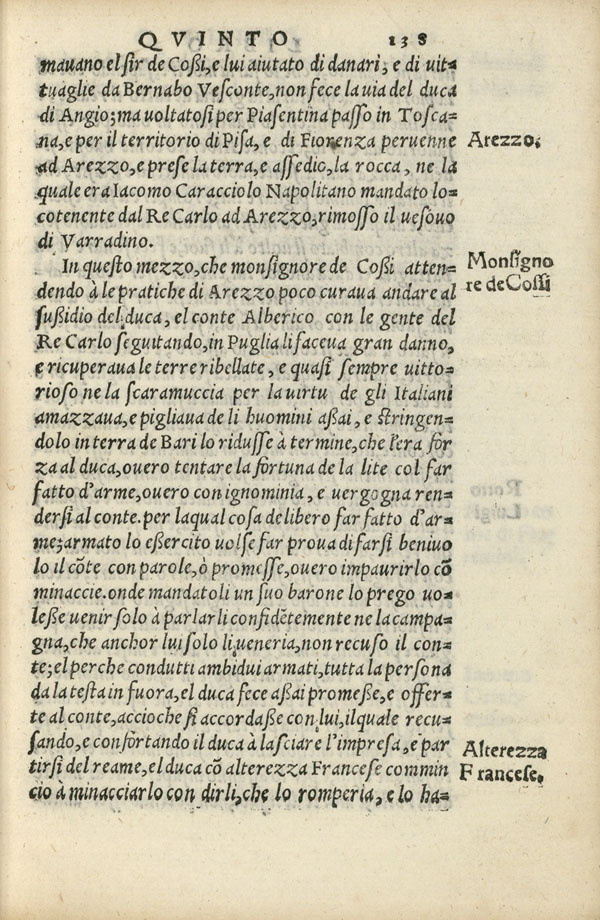 QVINTO 138
mauano el sir de Coßi, e lui aiutato di danari, e di uit=
tuaglie da Bernabo Vesconte, non fece la uia del duca
di Angio; ma uoltatosi per Piasentina passo in Tosca=
na, e per il territorio di Pisa, e di Fiorenza peruenne
Arezzo.
ad Arezzo, e prese la terra, e assedio, la rocca, ne la
quale era Iacomo Caracciolo Napolitano mandato lo=
cotenente dal Re Carlo ad Arezzo, rimosso il uesouo
di Varradino.
In questo mezzo, che monsignore de Coßi atten=
Monsigno
dendo à le pratiche di Arezzo poco curaua andare al
re de Cossi
sußidio del duca, el conte Alberico con le gente del
Re Carlo seguitando, in Puglia li faceua gran danno,
e ricuperaua le terre ribellate, e quasi sempre uitto=
rioso ne la scaramuccia per la uirtu de gli Italiani
amazzaua, e pigliaua de li huomini aßai, e stringen=
dolo in terra de Bari lo ridusse à termine, che l'era for
za al duca, ouero tentare la fortuna de la lite col far
fatto d'arme, ouero con ignominia, e uergogna ren=
dersi al conte. per laqual cosa delibero far fatto d'ar=
me; armato lo eßercito uolse far proua di farsi beniuo
lo il cōte con parole, ò promesse, ouero impaurirlo cō
minaccie. onde mandatoli un suo barone lo prego uo=
leße uenir solo à parlarli confidētemente ne la campa=
gna, che anchor lui solo li ueneria, non recuso il con=
te; el perche condutti ambidui armati, tutta la persona
da la testa in fuora, el duca fece aßai promeße, e offer=
te al conte, accioche si accordaße con lui, il quale recu=
sando, e confortando il duca à lasciare l'impresa, e par
Alterezza
tirsi del reame, el duca cō alterezza Francese commin
Francese.
cio à minacciarlo con dirli, che lo romperia, e lo ha=